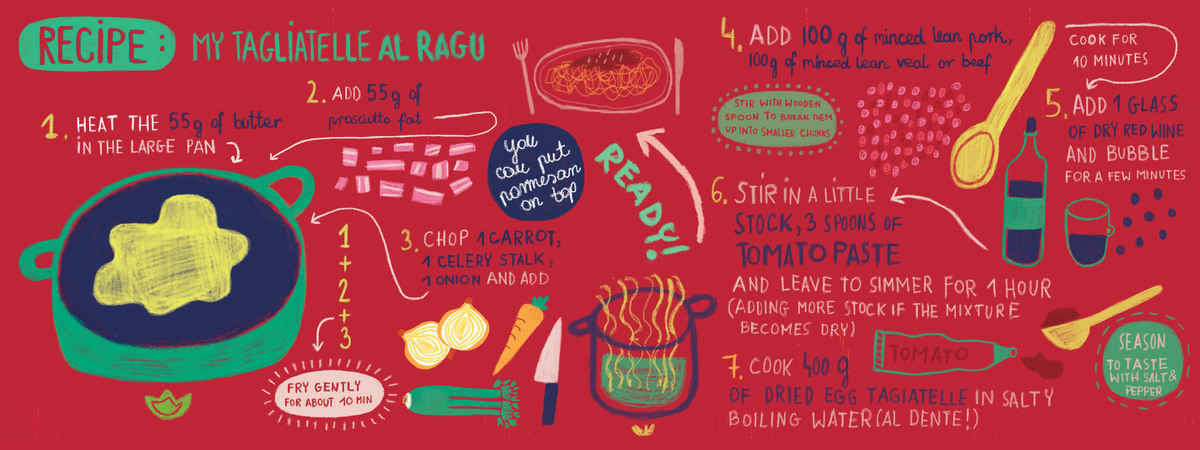 RECIPE:
MY TAGLIATELLE AL RAGU
1. HEAT THE 55g of butter
IN THE LARGE PAN
2. ADD 55g of
prosciutto fat
you
can put
parmesan
on top
3. CHOP 1 CARROT,
1 CELERY STALK,
1 ONION AND ADD
1
+
2
+
3
FRY GENTLY
FOR ABOUT 10 MIN
4. ADD 100 g of minced lean pork,
100g of minced lean veal or beef
STIR WITH WOODEN
SPOON TO BREAK THEM
UP INTO SMALLER CHUNKS
COOK FOR
10 MINUTES
5. ADD 1 GLASS
OF DRY RED WINE
AND BUBBLE
FOR A FEW MINUTES
6. STIR IN A LITTLE
STOCK, 3 SPOONS OF
TOMATO PASTE
AND LEAVE TO SIMMER FOR 1 HOUR
(ADDING MORE STOCK IF THE MIXTURE
BECOMES DRY)
TOMATO
SEASON
TO TASTE
WITH SALT &
PEPPER
7. COOK 400 g
OF DRIED EGG TAGIATELLE IN SALTY
BOILING WATER (AL DENTE!)
READY!